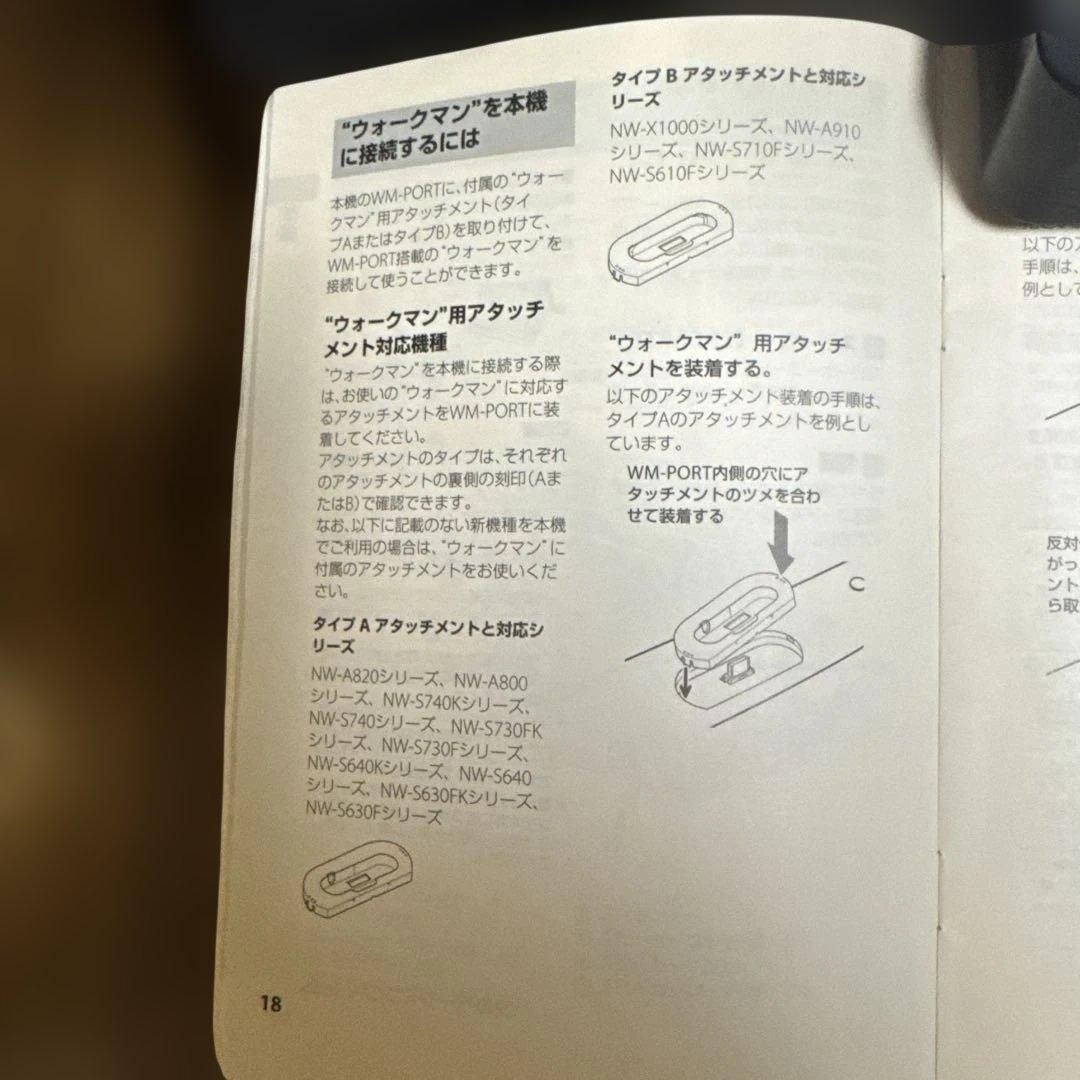 “ウォークマン”を本機
に接続するには
本機のWM-PORTに、付属の“ウォー
クマン”用アタッチメント（タイ
プAまたはタイプB）を取り付けて、
WM-PORT搭載の“ウォークマン”を
接続して使うことができます。
“ウォークマン”用アタッチ
メント対応機種
“ウォークマン”を本機に接続する際
は、お使いの“ウォークマン”に対応す
るアタッチメントをWM-PORTに装
着してください。
アタッチメントのタイプは、それぞれ
のアタッチメントの裏側の刻印（Aま
たはB）で確認できます。
なお、以下に記載のない新機種を本機
でご利用の場合は、“ウォークマン”に
付属のアタッチメントをお使いくだ
さい。
タイプ A アタッチメントと対応シ
リーズ
NW-A820シリーズ、NW-A800
シリーズ、NW-S740Kシリーズ、
NW-S740シリーズ、NW-S730FK
シリーズ、NW-S730Fシリーズ、
NW-S640Kシリーズ、NW-S640
シリーズ、NW-S630FKシリーズ、
NW-S630Fシリーズ
18
タイプ B アタッチメントと対応シ
リーズ
NW-X1000シリーズ、NW-A910
シリーズ、NW-S710Fシリーズ、
NW-S610Fシリーズ
“ウォークマン” 用アタッチ
メントを装着する。
以下のアタッチメント装着の手順は、
タイプAのアタッチメントを例とし
ています。
WM-PORT内側の穴にア
タッチメントのツメを合わ
せて装着する
以下の
手順は、
例として
反対
がっ
ント
ら取